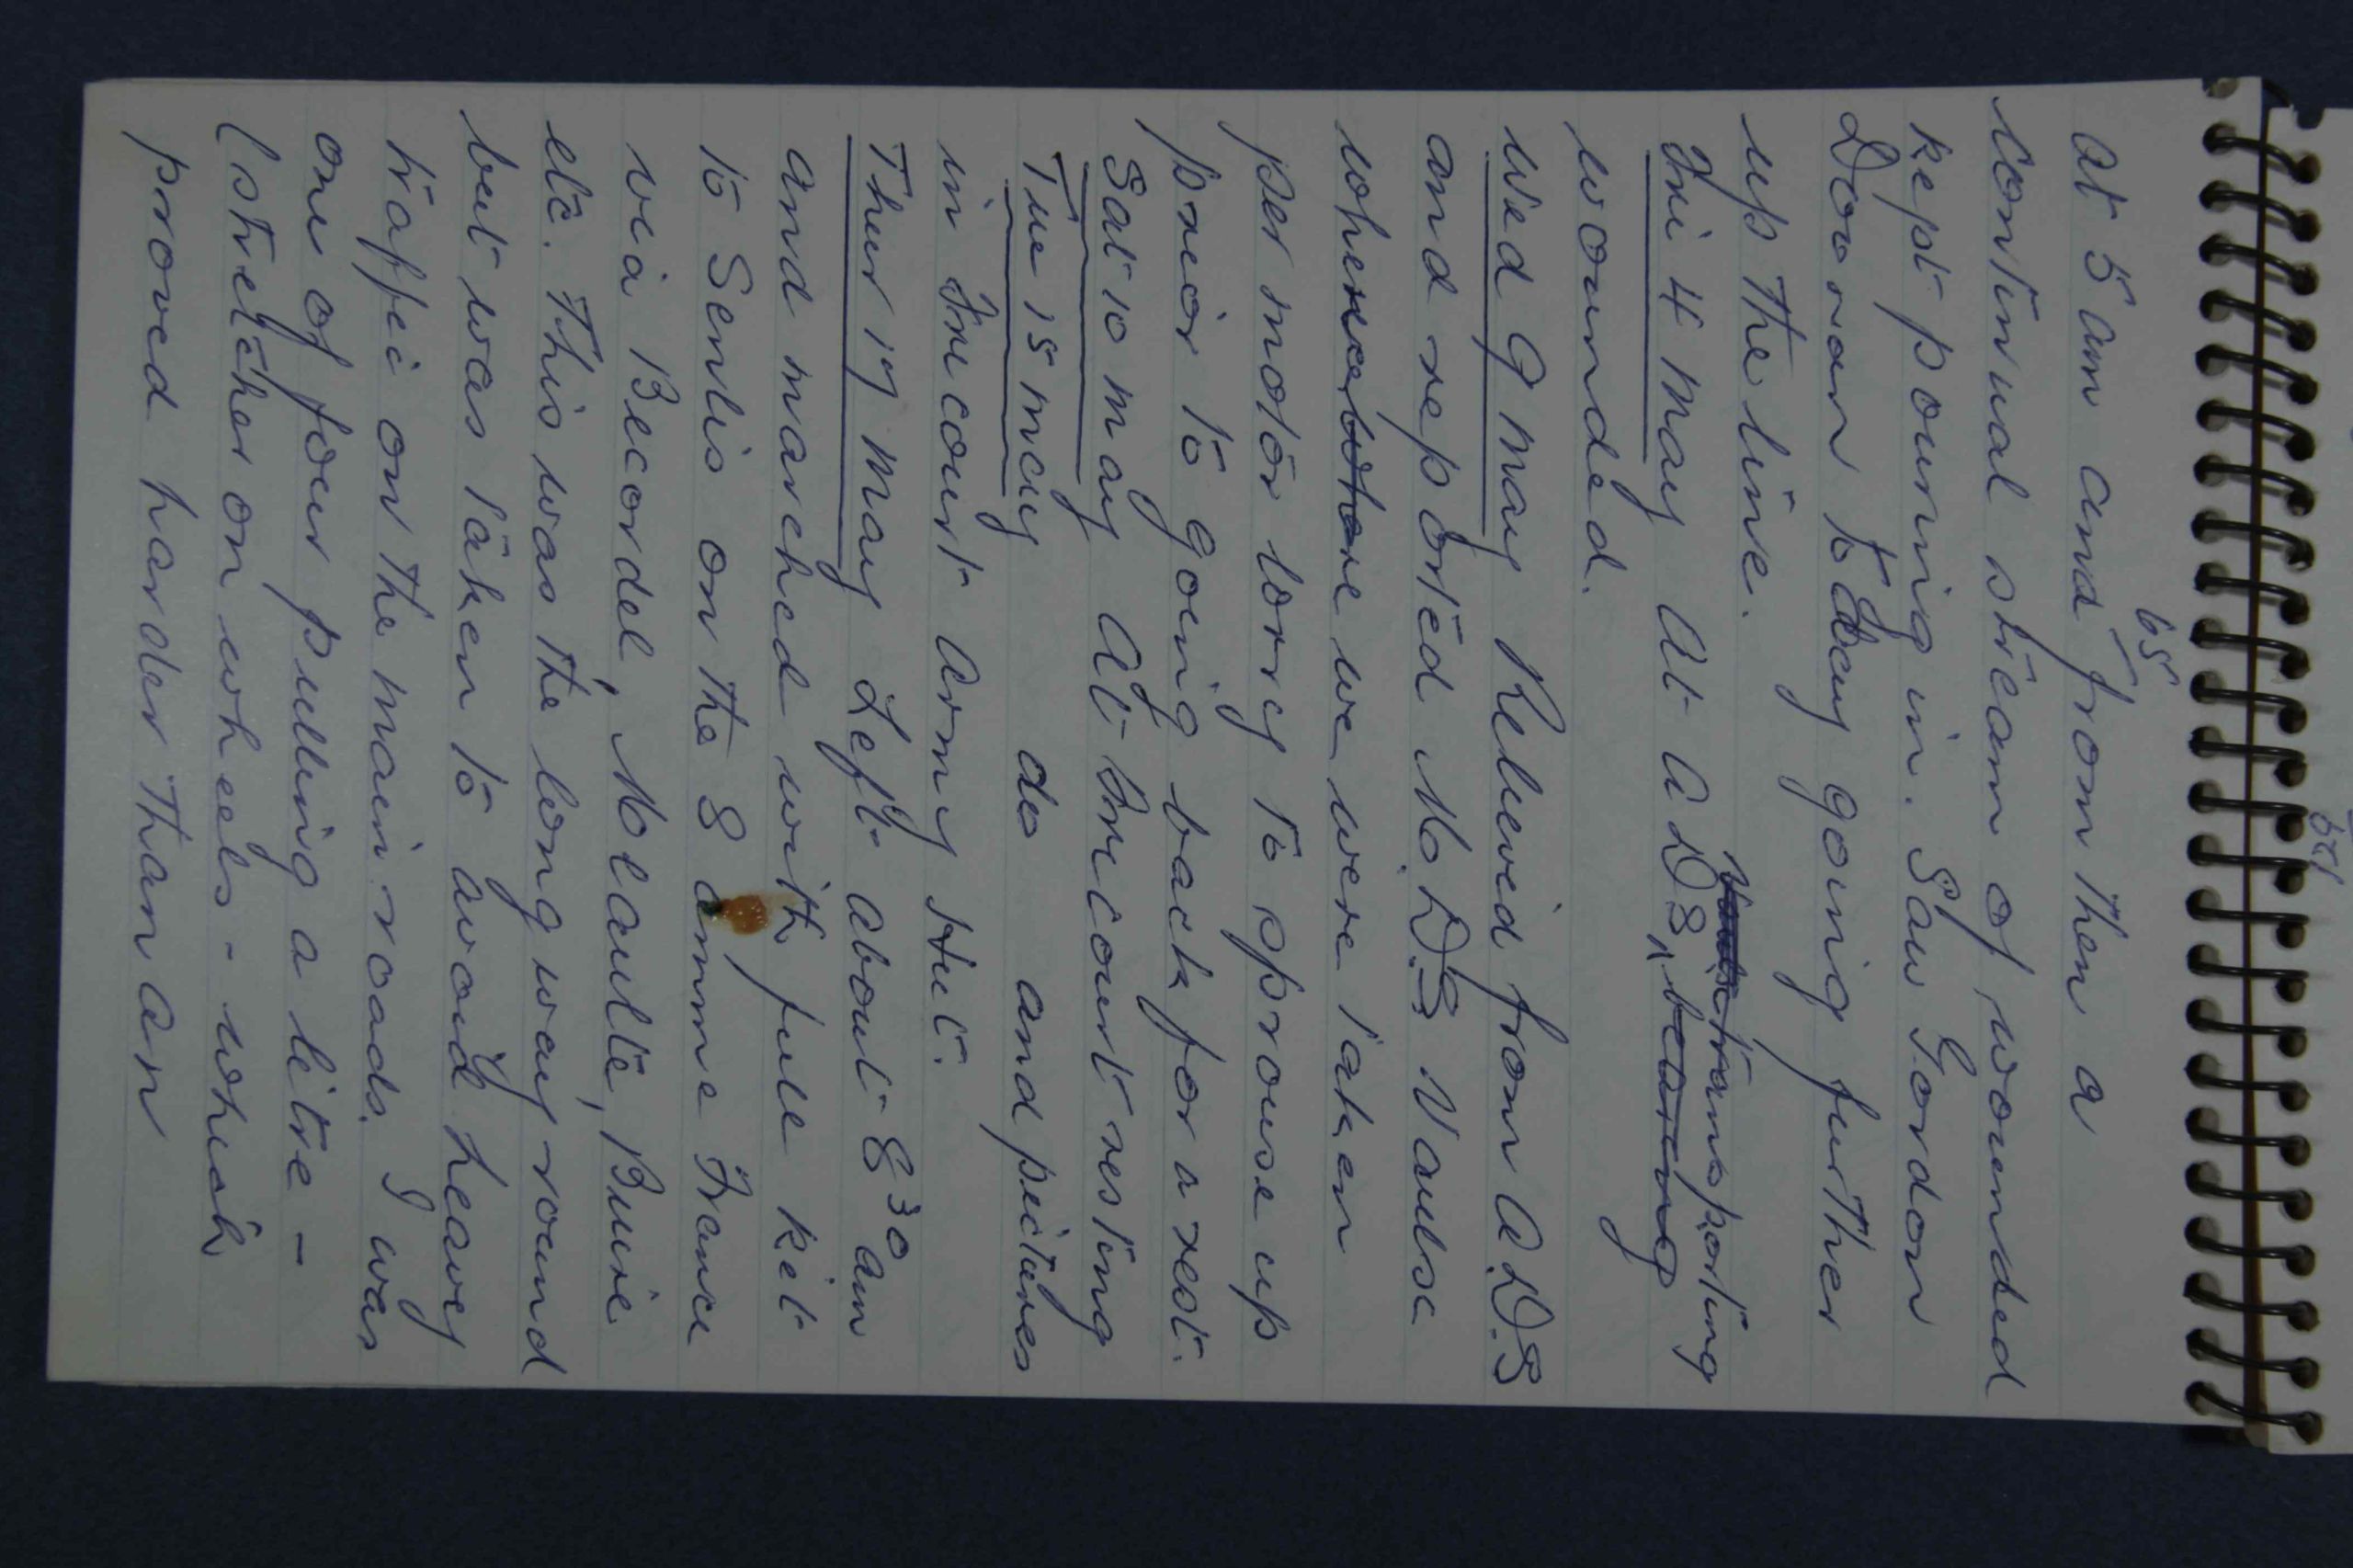 65
at 5 am and from then a
continual stream of wounded
kept pouring in. Saw Gordon
Doovan to day going further
up the line.
transporting
Fri 4 May At ADS, bearing
wounded.
Wed 9 May Relieved from A.D.S
and reported M.D.S Vaulx
where we were taken
per motor lorry to aprouse up
prior to going back for a rest.
Sat 10 may At Fricourt resting
Tue 15 may do and pictures
in Fricourt Army Hut.
Thur 17 May Left about 8 30 am
and marched with full kit
to Senlis on the Somme France
via Becordel, Molaulte, Buire
etc. This was the long way round
but was taken to avoid heavy
traffic on the main roads. I was
one of four pulling a litre -
(stretcher on wheels - which
proved harder than an